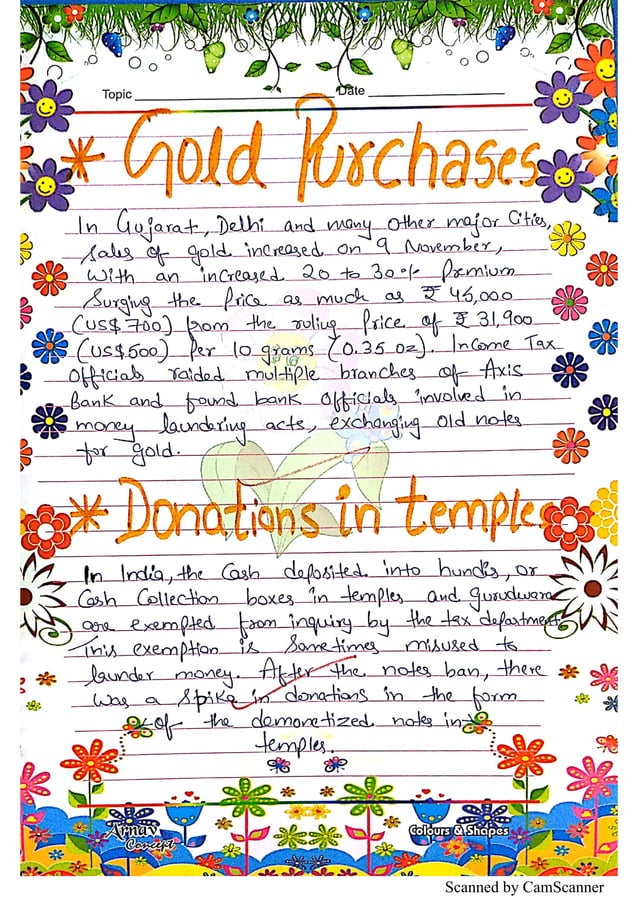 Topic Date
* Gold Purchases
In Gujarat, Delhi and many other major Cities,
Sales of gold increased on 9 November,
With an increased 20 to 30% Premium
Surging the Price as much as ₹ 45,000
(US$ 700) from the ruling Price of ₹ 31,900
(US$500) Per 10 grams (0.35 oz). Income Tax
Officials raided multiple branches of Axis
Bank and found bank officials involved in
money laundering acts, exchanging old notes
for gold.
* Donations in temples
In India, the Cash deposited into hundis, or
Cash Collection boxes in temples and gurudwara
are exempted from inquiry by the tax department
This exemption is Sometimes misused to
launder money. After the notes ban, there
was a Spike in donations in the form
of the demonetized notes in
temples.
Arnav
Concept
Colours & Shapes
Scanned by CamScanner